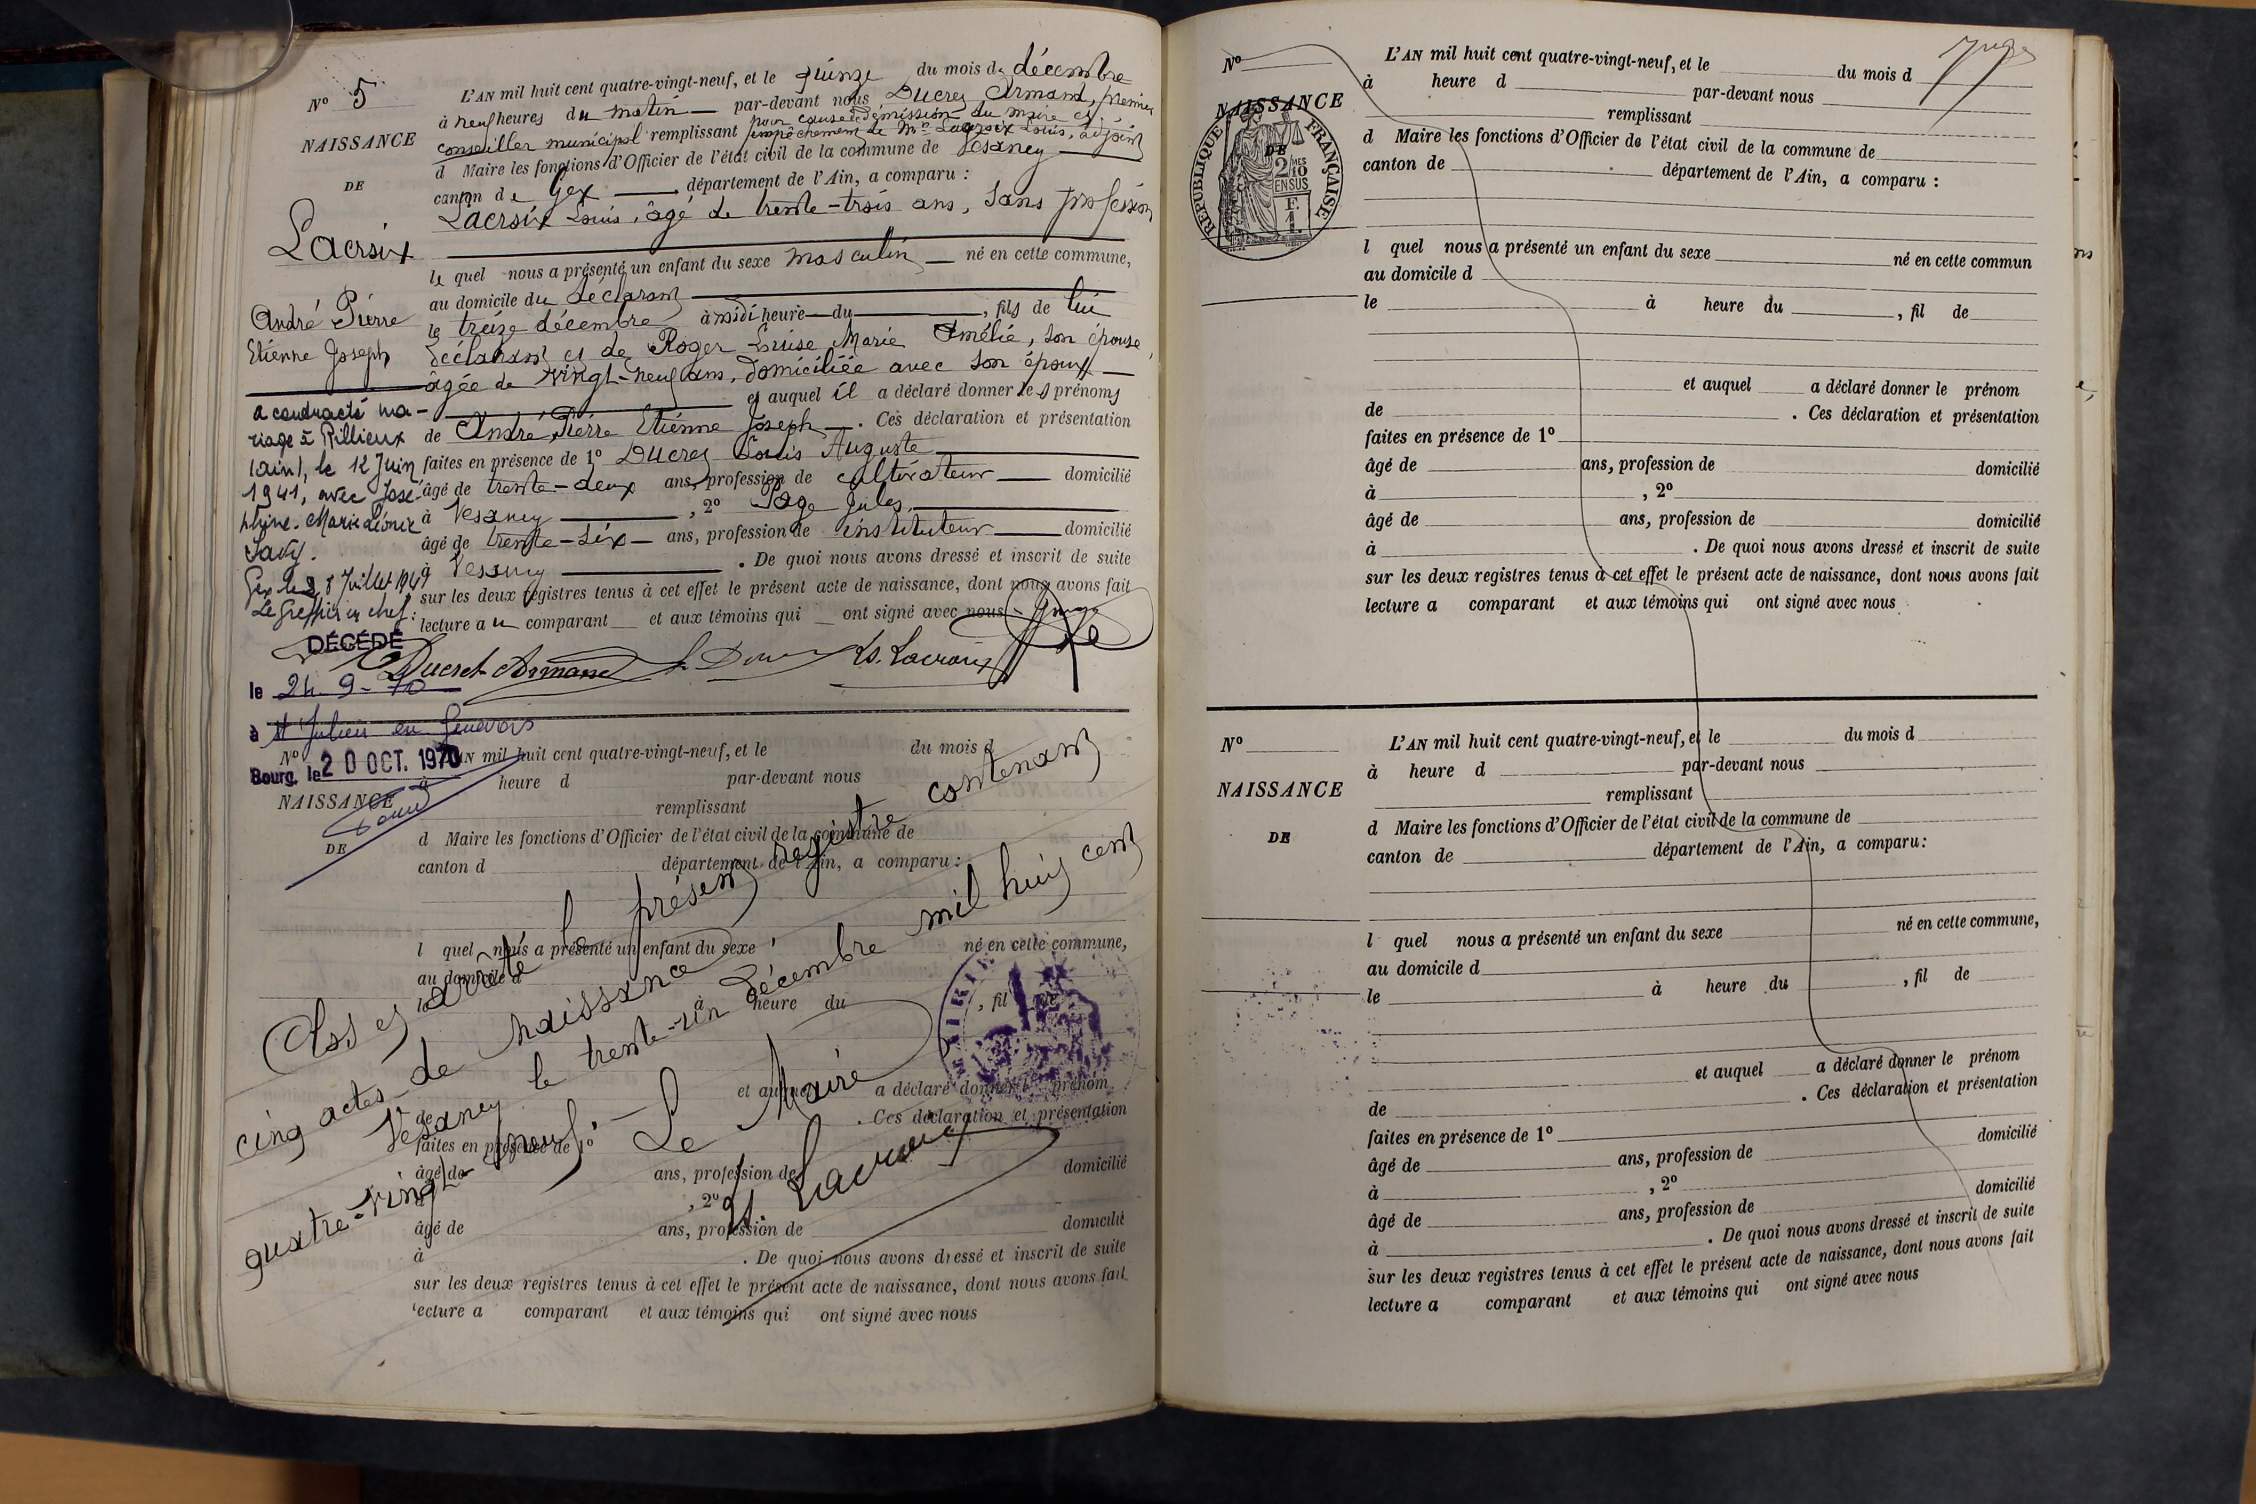 N° 5
NAISSANCE
DE
Lacroix
André Pierre
Etienne Joseph
L'AN mil huit cent quatre-vingt-neuf, et le quinze du mois de décembre
à neuf heures du matin par-devant nous Ducret Armand, premier
pour cause de démission du maire et
conseiller municipal remplissant empêchement de Mr Lacroix Louis, adjoint
d Maire les fonctions d'Officier de l'état civil de la commune de Vesancy
canton de Gex département de l'Ain, a comparu :
Lacroix Louis, âgé de trente-trois ans, sans profession
lequel nous a présenté un enfant du sexe masculin né en cette commune,
au domicile du déclarant
le treize décembre à midi heure du , fils de lui
déclarant et de Roger Louise Marie Amélie, son épouse,
âgée de vingt-neuf ans, domiciliée avec son époux
et auquel il a déclaré donner les prénoms
de André Pierre Etienne Joseph . Ces déclaration et présentation
faites en présence de 1° Ducret Louis Auguste
âgé de trente-deux ans, profession de cultivateur domicilié
à Vesancy , 2° Page Jules,
âgé de trente-six ans, profession de instituteur domicilié
à Vesancy . De quoi nous avons dressé et inscrit de suite
sur les deux registres tenus à cet effet le présent acte de naissance, dont nous avons fait
lecture au comparant et aux témoins qui ont signé avec nous
a contracté ma-
riage à Rillieux
(Ain), le 12 Juin
1941, avec José-
phine-Marie Léonie
Savy.
Gex le 8 Juillet 1941
Le Greffier en chef :
Ducret Armand Ls. Lacroix
DÉCÉDÉ
le 24-9-70
à St Julien en Genevois
Bourg, le 20 OCT. 1970
N°
NAISSANCE
DE
L'AN mil huit cent quatre-vingt-neuf, et le du mois d
à heure d par-devant nous
remplissant
d Maire les fonctions d'Officier de l'état civil de la commune de
canton d département de l'Ain, a comparu :
l quel nous a présenté un enfant du sexe né en cette commune,
au domicile d
le à heure du , fil de
et auquel a déclaré donner le prénom
de . Ces déclaration et présentation
faites en présence de 1°
âgé de ans, profession de domicilié
à , 2°
âgé de ans, profession de domicilié
à . De quoi nous avons dressé et inscrit de suite
sur les deux registres tenus à cet effet le présent acte de naissance, dont nous avons fait
lecture a comparant et aux témoins qui ont signé avec nous
Clos et arrêté le présent registre contenant
cinq actes de naissance
Vesancy le trente-un décembre mil huit cent
quatre-vingt-neuf.
Le Maire
Ls. Lacroix
MAIRIE
N°
NAISSANCE
DE
RÉPUBLIQUE FRANÇAISE
2/10
MES
EN SUS
F.
1
L'AN mil huit cent quatre-vingt-neuf, et le du mois d
à heure d par-devant nous
remplissant
d Maire les fonctions d'Officier de l'état civil de la commune de
canton de département de l'Ain, a comparu :
l quel nous a présenté un enfant du sexe né en cette commun
au domicile d
le à heure du , fil de
et auquel a déclaré donner le prénom
de . Ces déclaration et présentation
faites en présence de 1°
âgé de ans, profession de domicilié
à , 2°
âgé de ans, profession de domicilié
à . De quoi nous avons dressé et inscrit de suite
sur les deux registres tenus à cet effet le présent acte de naissance, dont nous avons fait
lecture a comparant et aux témoins qui ont signé avec nous
N°
NAISSANCE
DE
L'AN mil huit cent quatre-vingt-neuf, et le du mois d
à heure d par-devant nous
remplissant
d Maire les fonctions d'Officier de l'état civil de la commune de
canton de département de l'Ain, a comparu :
l quel nous a présenté un enfant du sexe né en cette commune,
au domicile d
le à heure du , fil de
et auquel a déclaré donner le prénom
de . Ces déclaration et présentation
faites en présence de 1°
âgé de ans, profession de domicilié
à , 2°
âgé de ans, profession de domicilié
à . De quoi nous avons dressé et inscrit de suite
sur les deux registres tenus à cet effet le présent acte de naissance, dont nous avons fait
lecture a comparant et aux témoins qui ont signé avec nous